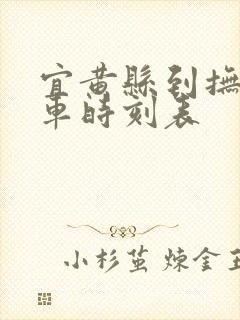 宜黄縣到撫
車時刻表
小杉茧 煉金王